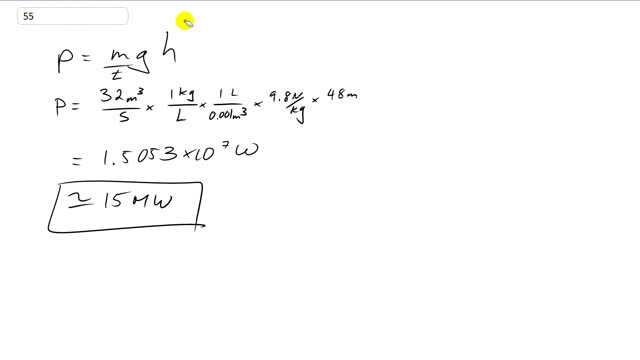 55
P = m/t g h
P = 32 m³/s × 1 kg/L × 1 L/0.001 m³ × 9.8 N/kg × 48 m
= 1.5053 × 10⁷ W
≃ 15 MW